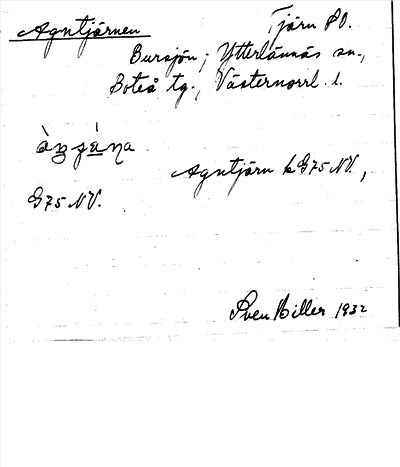 Agntjärnen Tjärn PO.
Bursjön; Ytterlännäs sn.,
Boteå tg., Västernorrl. l.
Agntjärn k G75 NV.,
G75 NV.
Sven Hiller 1932